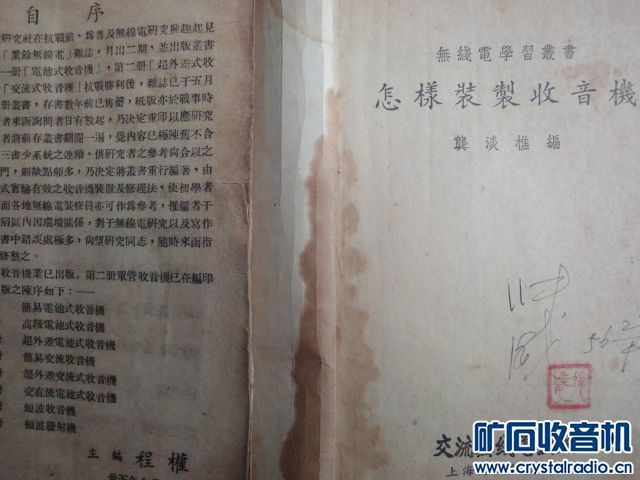 自序
研究社在抗戰前、爲普及無線電硏究興趣起見
「業餘無綫電」雜誌，月出二期，並出版叢書
一册「電池式收音機」，第二册「超外差式收
「交流式收音機」抗戰勝利後，雜誌已于五月
叢書，存書數年前已售罄，紙版亦於戰事時
來函詢問者日有數起，乃決定重印以應研究
者將前存叢書翻閱一過，覺內容已極陳舊不合
三書少系統之連續，供硏究者之參考尙合以之
門，則缺點頗多，乃决定將叢書重行編著，由
式實驗有效之收音機裝置及修理法，使初學者
而各地無線電裝修員亦可作爲參考，惟編者于
區內因環境關係，對于無線電硏究以及寫作
書中錯誤處極多，尙望硏究同志，隨時來函指
修整之。
收音機業已出版。第二册單管收音機已在編印
版之陳序如下：——
簡易電池式收音機
高段電池式收音機
超外差電池式收音機
簡易交流收音機
超外差交流式收音機
交直流電池式收音機
短波收音機
短波發射機
主編 程權
無綫電學習叢書
怎樣裝製收音機
龔淡樵編
56
交流
上海
矿石收音机
www.crystalradio.cn